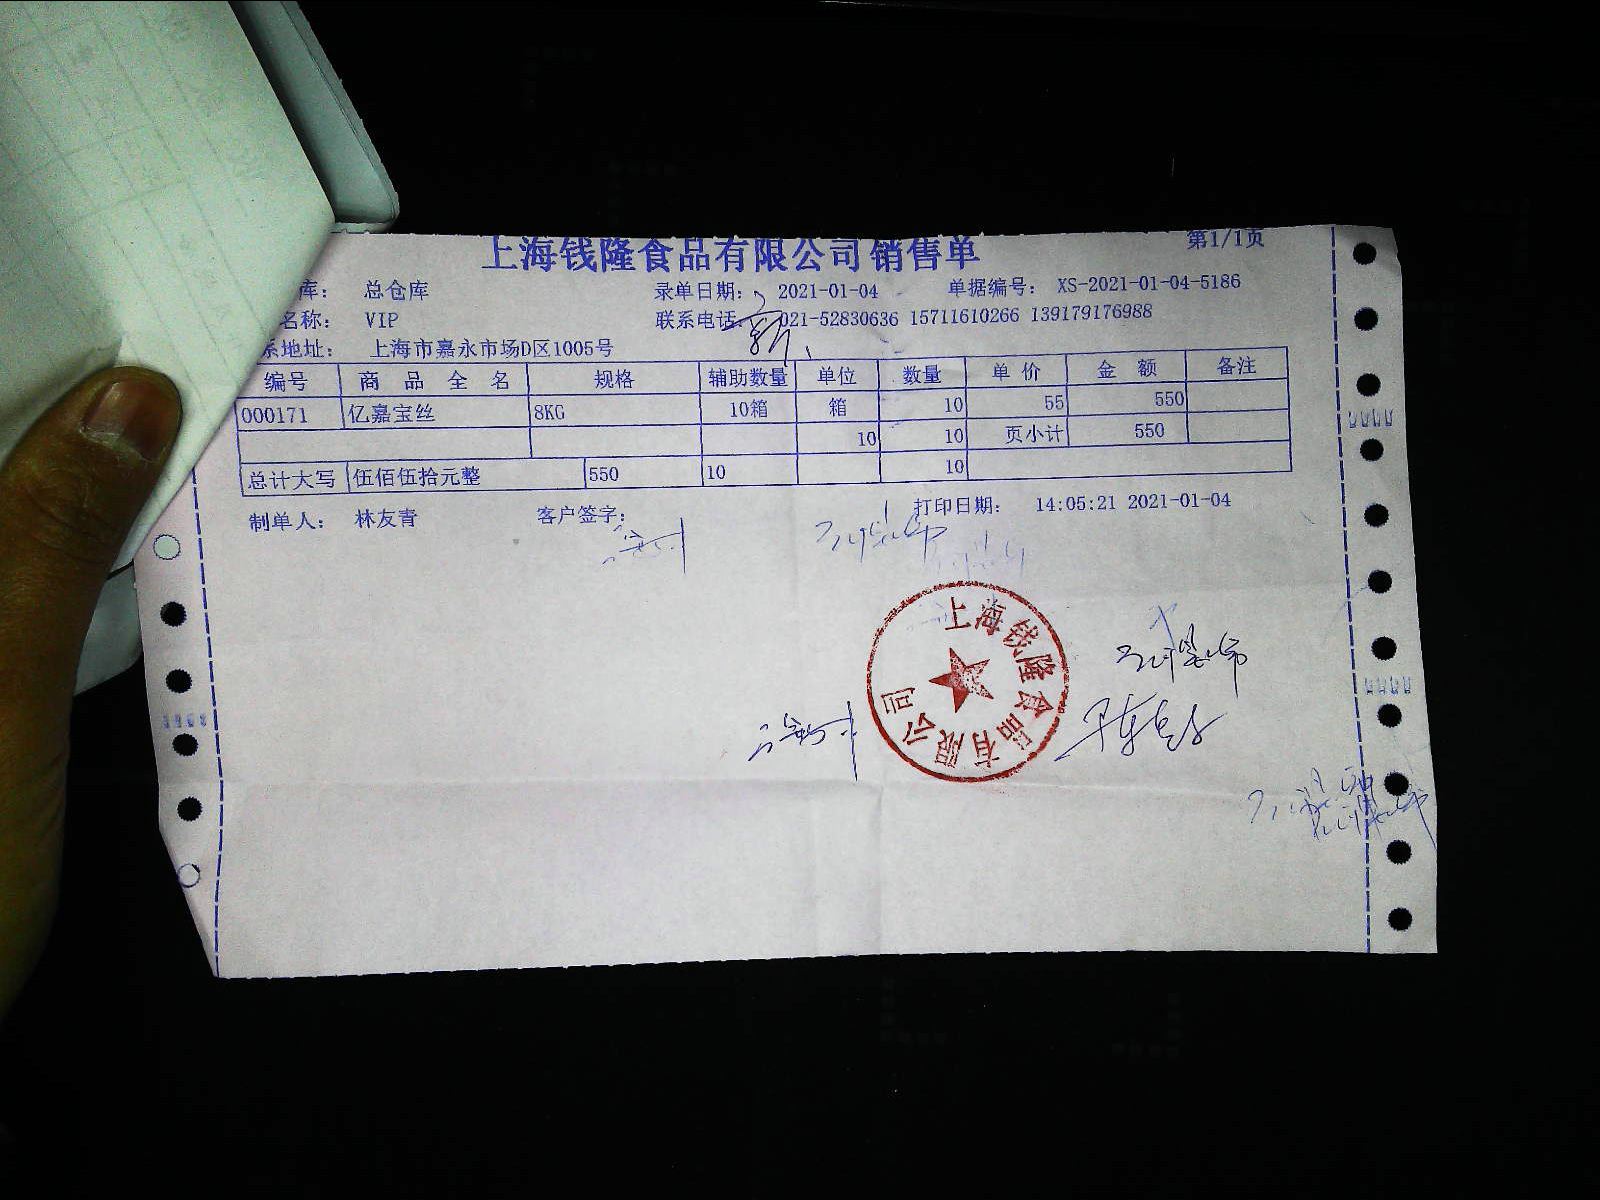 上海钱隆食品有限公司销售单 第1/1页
库： 总仓库 录单日期： 2021-01-04 单据编号： XS-2021-01-04-5186
名称： VIP 联系电话： 021-52830636 15711610266 139179176988
系地址： 上海市嘉永市场D区1005号
编号 商品全名 规格 辅助数量 单位 数量 单价 金额 备注
000171 亿嘉宝丝 8KG 10箱 箱 10 55 550
10 10 页小计 550
总计大写 伍佰伍拾元整 550 10 10
制单人： 林友青 客户签字： 打印日期： 14:05:21 2021-01-04
上海钱隆食品有限公司